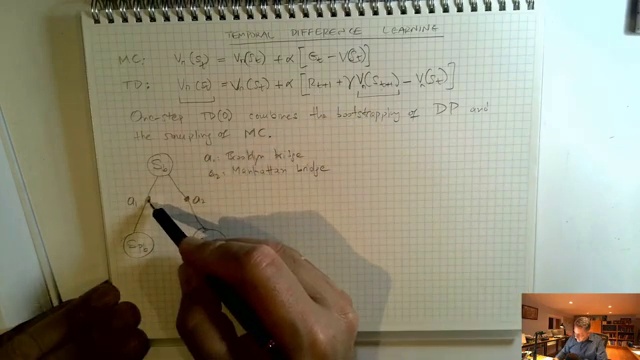 TEMPORAL DIFFERENCE LEARNING
MC: Vπ(St) = Vπ(St) + α [Gt - V(St)]
TD: Vπ(St) = Vπ(St) + α [Rt+1 + γVπ(St+1) - Vπ(St)]
One-step TD(0) combines the bootstrapping of DP and
the sampling of MC.
a1: Brooklyn bridge
a2: Manhattan bridge
Sb
a1 a2